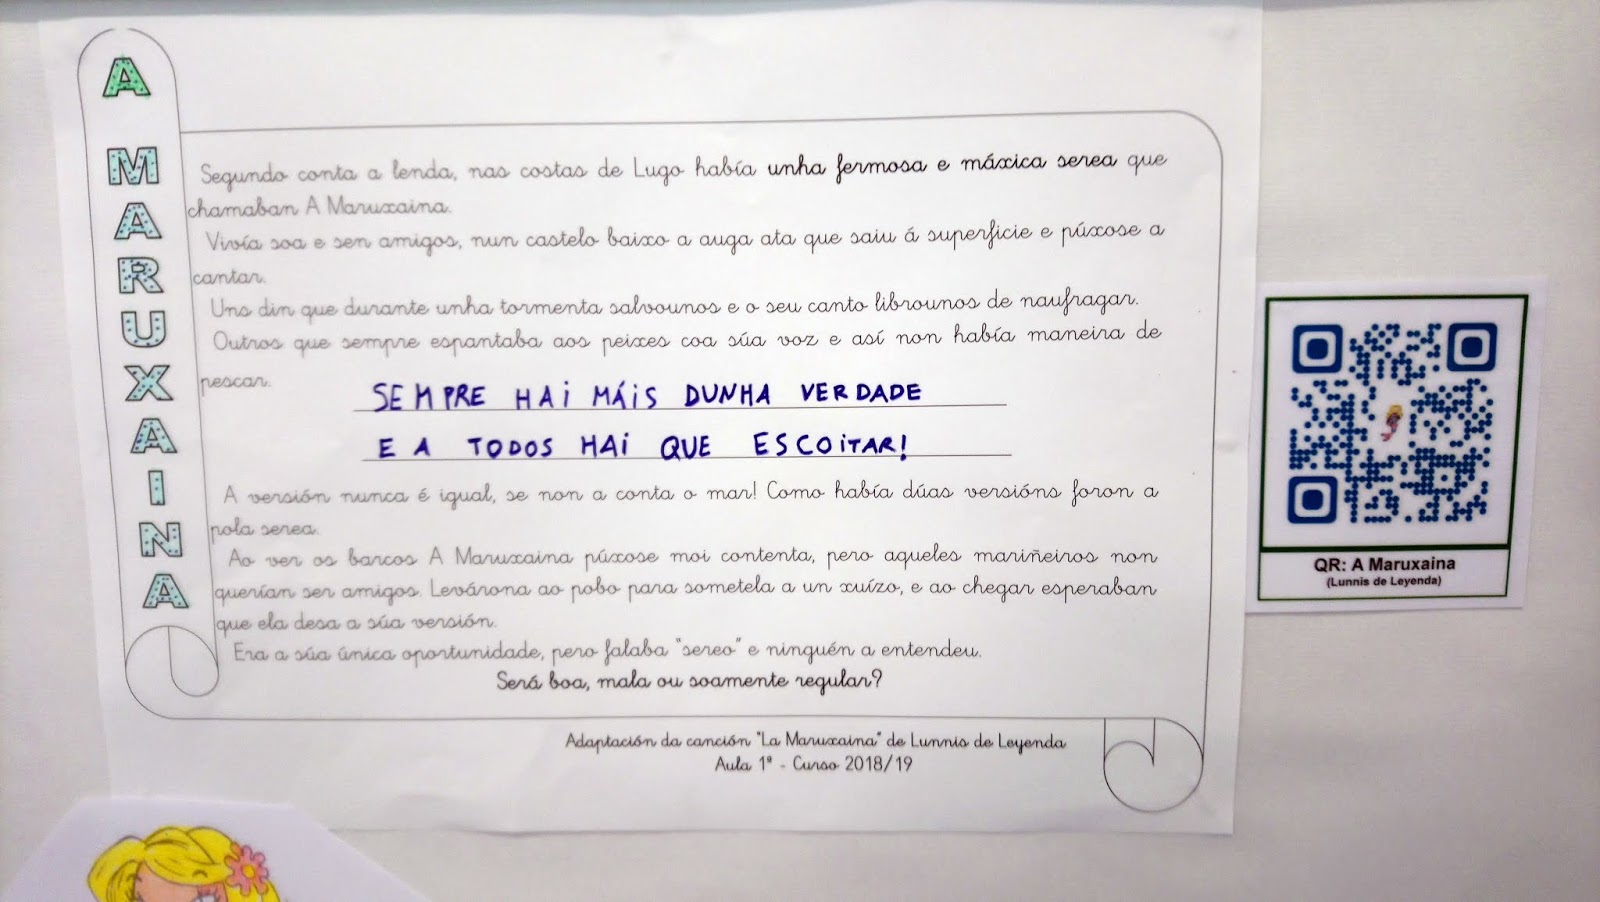 A MARUXAINA
Segundo conta a lenda, nas costas de Lugo había unha fermosa e máxica serea que
chamaban A Maruxaina.
Vivía soa e sen amigos, nun castelo baixo a auga ata que saiu á superficie e púxose a
cantar.
Uns din que durante unha tormenta salvounos e o seu canto librounos de naufragar.
Outros que sempre espantaba aos peixes coa súa voz e así non había maneira de
pescar.
SEMPRE HAI MÁIS DUNHA VERDADE
E A TODOS HAI QUE ESCOITAR!
A versión nunca é igual, se non a conta o mar! Como había dúas versións foron a
pola serea.
Ao ver os barcos A Maruxaina púxose moi contenta, pero aqueles mariñeiros non
querían ser amigos. Levárona ao pobo para sometela a un xuízo, e ao chegar esperaban
que ela desa a súa versión.
Era a súa única oportunidade, pero falaba "sereo" e ninguén a entendeu.
Será boa, mala ou soamente regular?
Adaptación da canción "La Maruxaina" de Lunnis de Leyenda
Aula 1ª - Curso 2018/19
QR: A Maruxaina
(Lunnis de Leyenda)